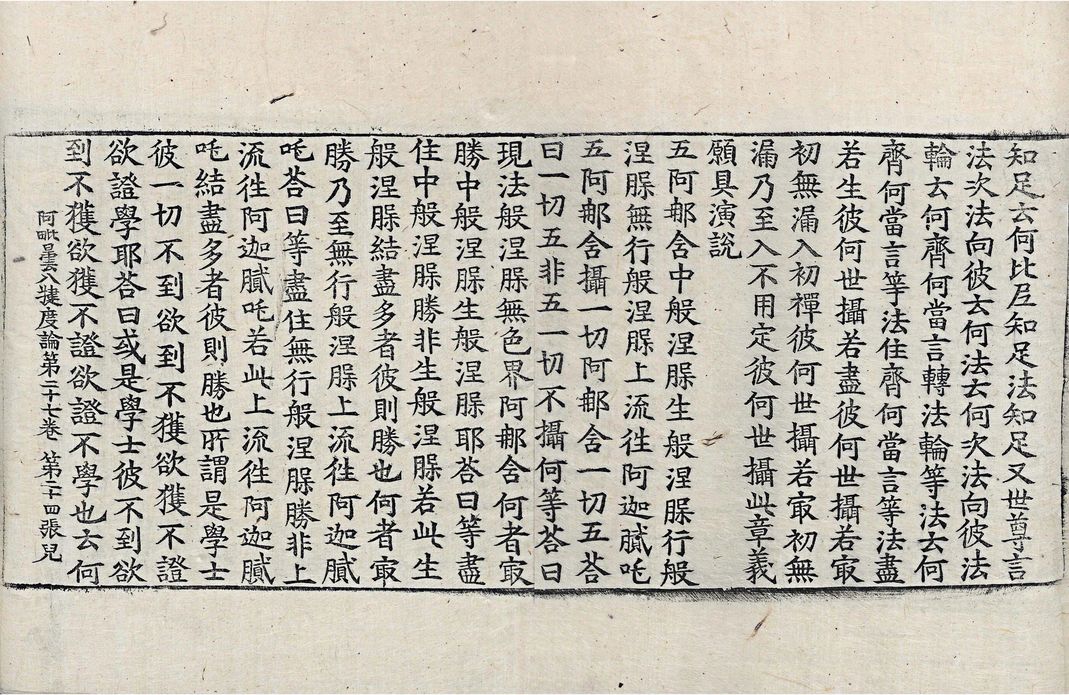 知足云何比丘知足法知足又世尊言
法次法向彼云何法云何次法向彼法
輪云何齊何當言轉法輪等法云何
齊何當言等法住齊何當言等法盡
若生彼何世攝若盡彼何世攝若㝡
初無漏入初禪彼何世攝若㝡初無
漏乃至入不用定彼何世攝此章義
願具演說
五阿那舍中般涅脲生般涅脲行般
涅脲無行般涅脲上流往阿迦膩吒
五阿那舍攝一切阿那舍一切五荅
曰一切五非五一切不攝何等荅曰
現法般涅脲無色界阿那舍何者㝡
勝中般涅脲生般涅脲耶荅曰等盡
住中般涅脲勝非生般涅脲若此生
般涅脲結盡多者彼則勝也何者㝡
勝乃至無行般涅脲上流往阿迦膩
吒荅曰等盡住無行般涅脲勝非上
流往阿迦膩吒若此上流往阿迦膩
吒結盡多者彼則勝也所謂是學士
彼一切不到欲到不獲欲獲不證
欲證學耶荅曰或是學士彼不到欲
到不獲欲獲不證欲證不學也云何
阿毗曇八犍度論第二十七卷 第二十四張兒